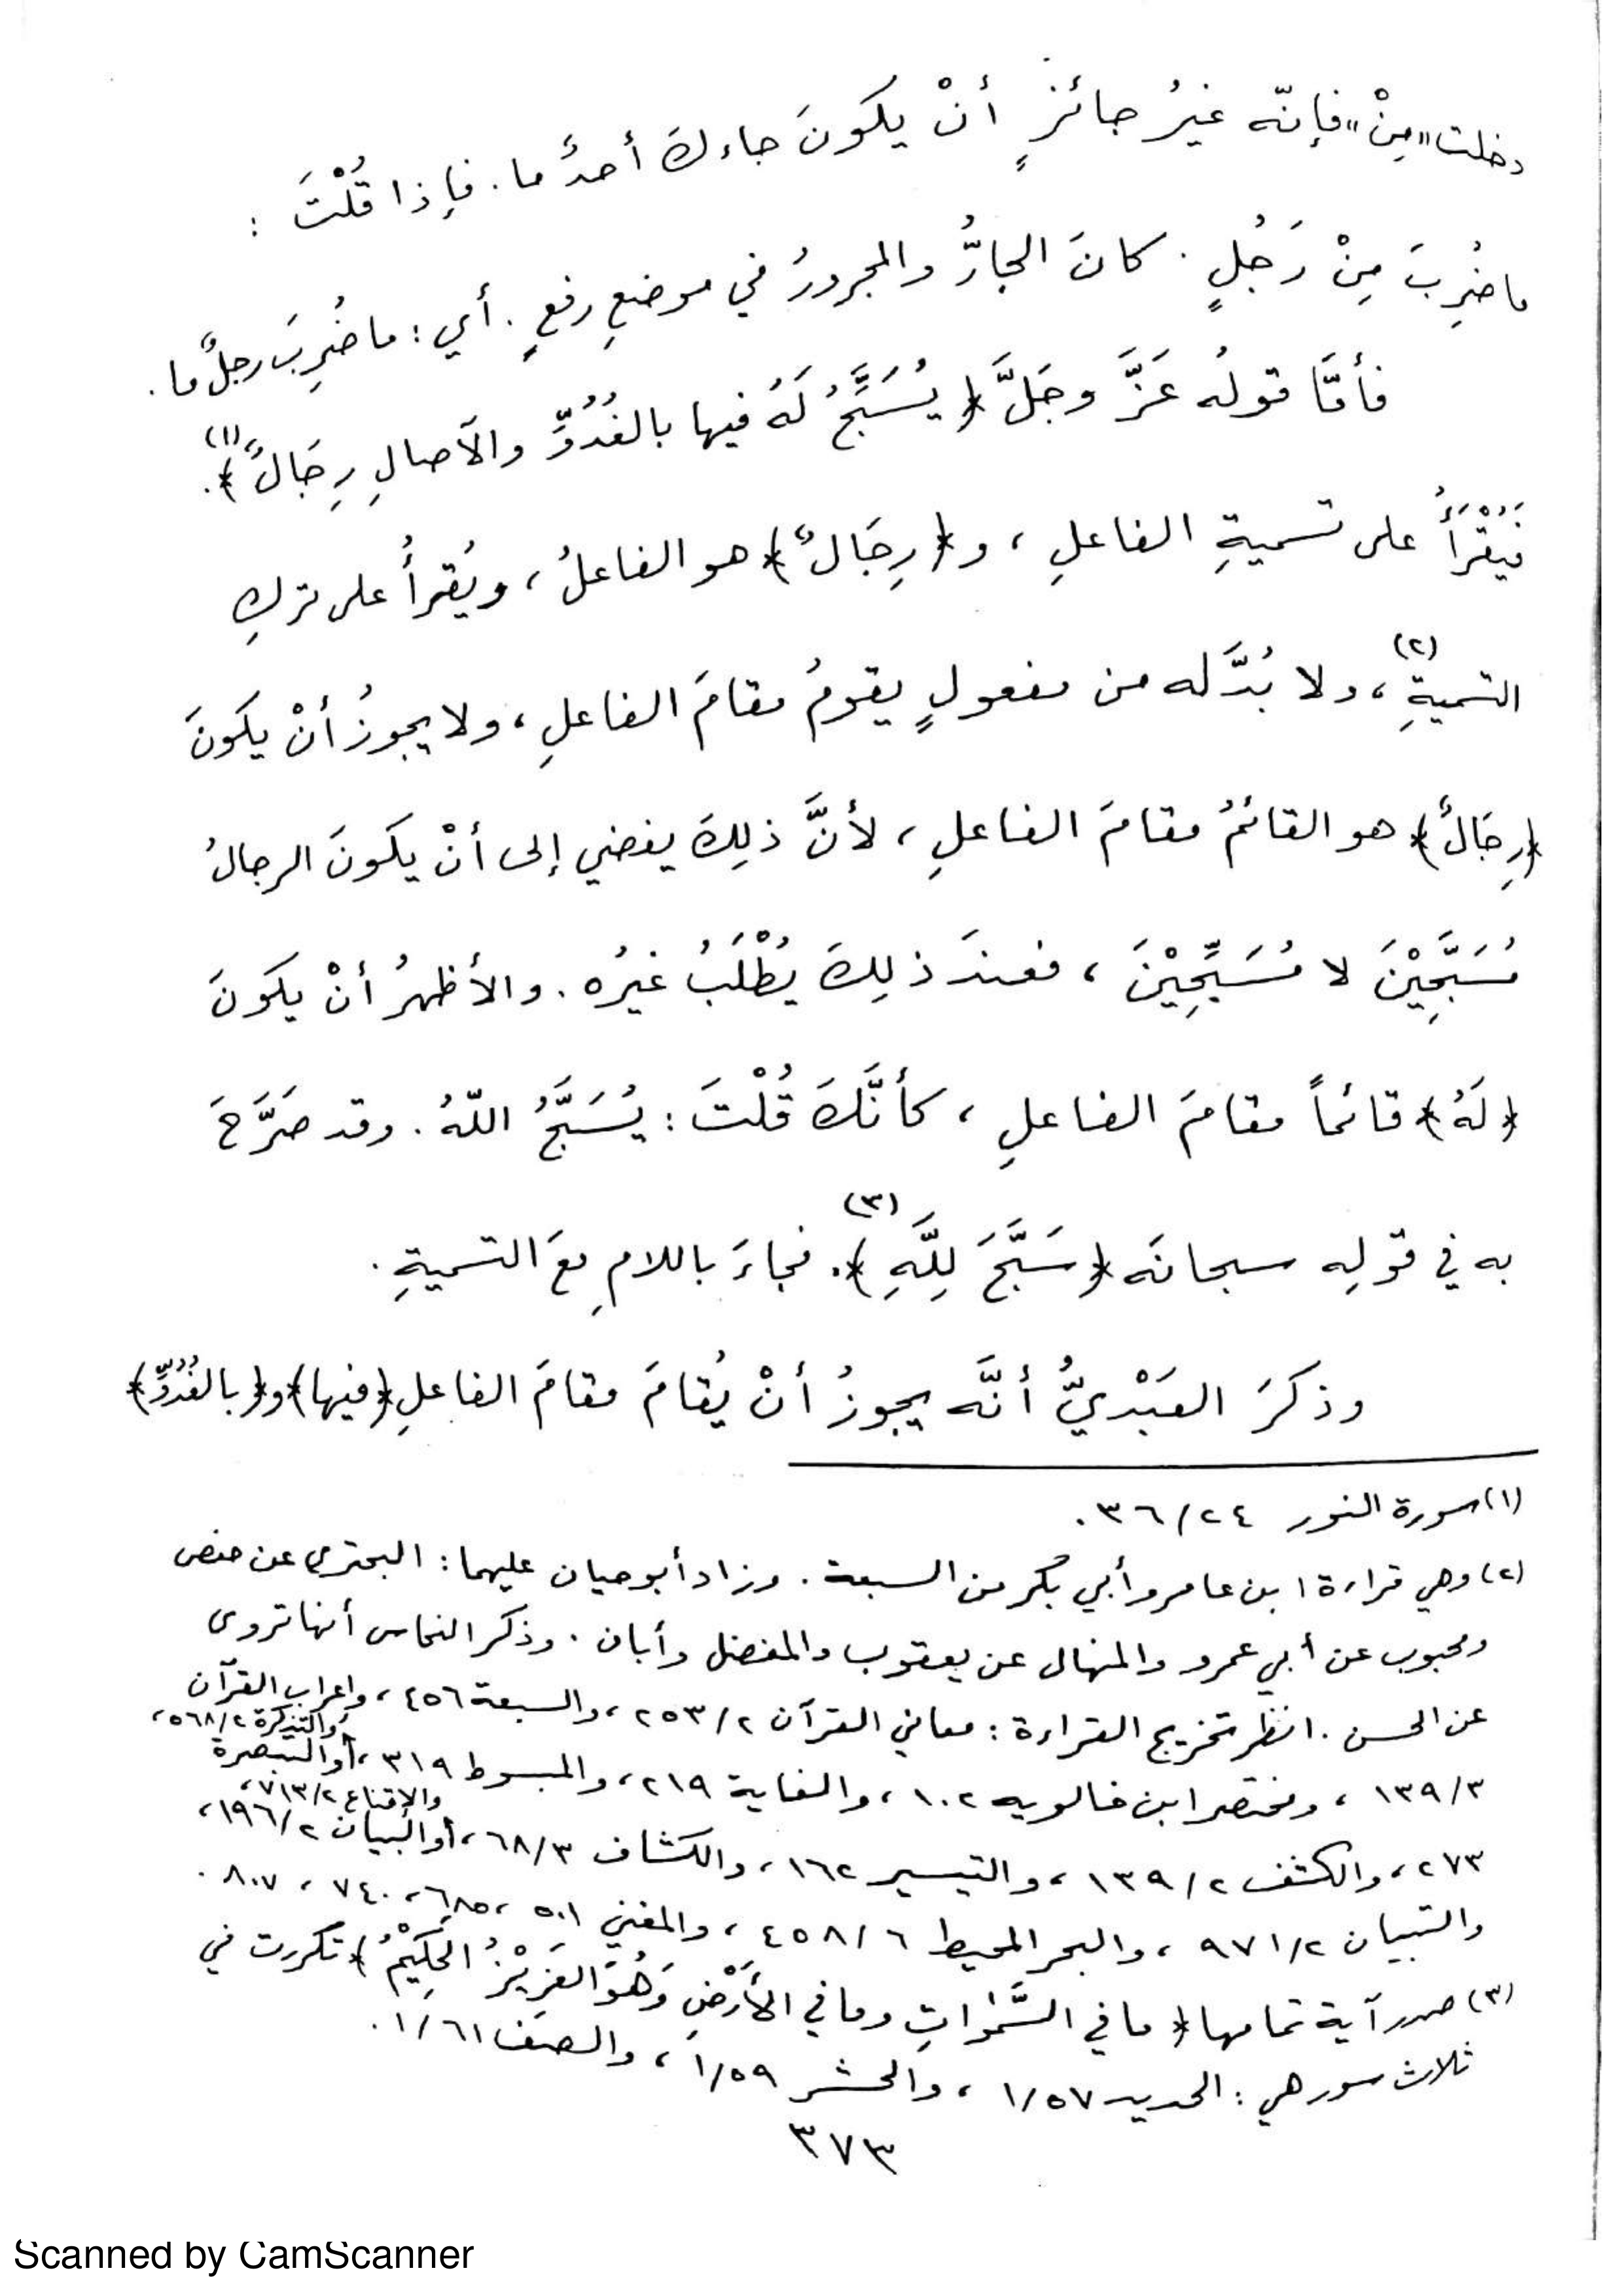 دخلت «مِنْ» فإنّه غيرُ جائزٍ أنْ يكونَ جاءكَ أحدٌ ما. فإذا قُلْتَ :
ما ضُرِبَ مِنْ رَجُلٍ . كانَ الجارُّ والمجرورُ في موضعِ رفعٍ . أي : ما ضُرِبَ رجلٌ ما .
فأمَّا قولُه عَزَّ وجَلَّ ﴿ يُسَبَّحُ لَهُ فيها بالغُدُوِّ والآصالِ رِجَالٌ ﴾(١).
فَيُقْرَأُ على تسميةِ الفاعلِ ، و﴿رِجَالٌ﴾ هو الفاعلُ ، ويُقرأُ على تركِ
التسميةِ(٢) ، ولا بُدَّ له من مفعولٍ يقومُ مقامَ الفاعلِ ، ولا يجوزُ أنْ يكونَ
﴿رِجَالٌ﴾ هو القائمُ مقامَ الفاعلِ ، لأنَّ ذلِكَ يفضي إلى أنْ يكونَ الرجالُ
مُسَبَّحِيْنَ لا مُسَبِّحِيْنَ ، فعندَ ذلِكَ يُطْلَبُ غيرُه . والأظهرُ أنْ يكونَ
﴿لَهُ﴾ قائماً مقامَ الفاعلِ ، كأنَّكَ قُلْتَ : يُسَبَّحُ اللّهُ . وقد صَرَّحَ
به في قولِه سبحانَه ﴿سَبَّحَ لِلَّهِ ﴾(٣). فجاءَ باللامِ معَ التسميةِ .
وذكرَ العَبْديُّ أنَّه يجوزُ أنْ يُقامَ مقامَ الفاعلِ ﴿فيها﴾ و﴿بالغُدُوِّ﴾
(١) سورة النور ٢٤/٣٦ .
(٢) وهي قراءة ابن عامر وأبي بكر من السبعة . وزاد أبو حيان عليهما : البحتري عن حفص
ومحبوب عن أبي عمرو والمنهال عن يعقوب والمفضل وأبان . وذكر النحاس أنها تروى
عن الحسن . انظر تخريج القراءة : معاني القرآن ٢/٢٥٣ ، والسبعة ٤٥٦ ، وإعراب القرآن
٣/١٣٩ ، ومختصر ابن خالويه ١٠٢ ، والغاية ٢١٩ ، والمبسوط ٣١٩ ، والتذكرة ٢/٥٦٨ ، والتبصرة
٢٧٣ ، والكشف ٢/١٣٩ ، والتيسير ١٦٢ ، والكشاف ٣/٦٨ ، والإقناع ٢/٧١٣ ، والبيان ٢/١٩٦ ،
والتبيان ٢/٩٧١ ، والبحر المحيط ٦/٤٥٨ ، والمغني ٥٠١ ، ٦٨٥ ، ٧٤٠ ، ٨٠٧ .
(٣) صدر آية تمامها ﴿ ما في السَّمٰوَاتِ وما في الأَرْضِ وَهُوَ العَزِيْزُ الحَكِيْمُ ﴾ تكررت في
ثلاث سور هي : الحديد ٥٧/١ ، والحشر ٥٩/١ ، والصف ٦١/١ .
٣٧٣
Scanned by CamScanner